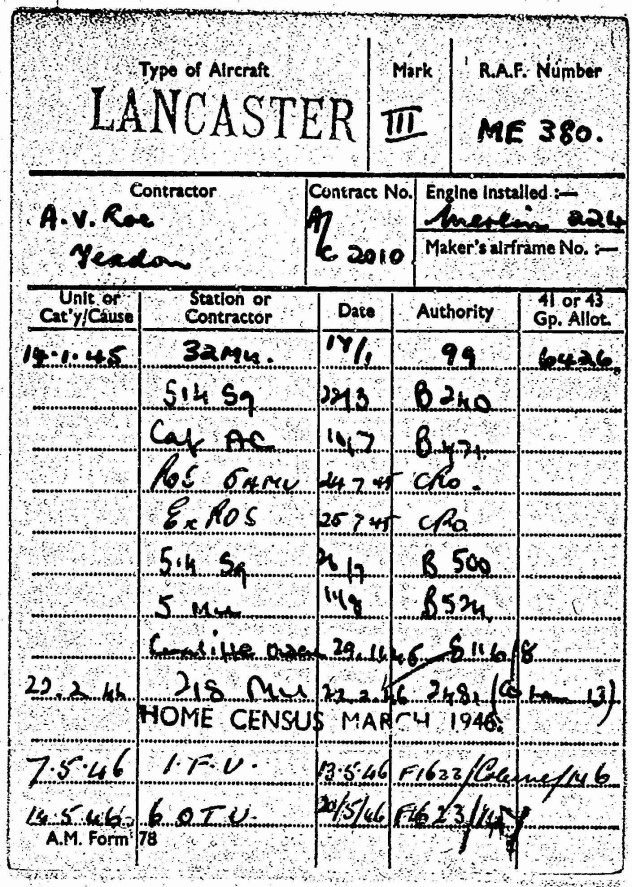 Type of Aircraft Mark R.A.F. Number
LANCASTER III ME 380.
Contractor Contract No. Engine installed :—
A.V. Roe A/C 2010 Merlin 224
Yeadon Maker's airframe No. :—
Unit or Cat'y/Cause Station or Contractor Date Authority 41 or 43 Gp. Allot.
14.1.45 32 Mu. 14/1 99 6426
514 Sq B 240
Cat AC B 471
ROS 54MU 24 7 45 CRO.
Ex ROS 25 7 45 CRO
514 Sq B 500
5 Mu 14/8 B 524
Cunliffe Owen 29.11.45 S116/8
22.2.46 218 Mu 22.2.46 2481 13)
HOME CENSUS MARCH 1946.
7.5.46 I.F.U. 13.5.46 F1622/ /46
14.5.46. 6 OTU. 20/5/46 F1623/
A.M. Form 78